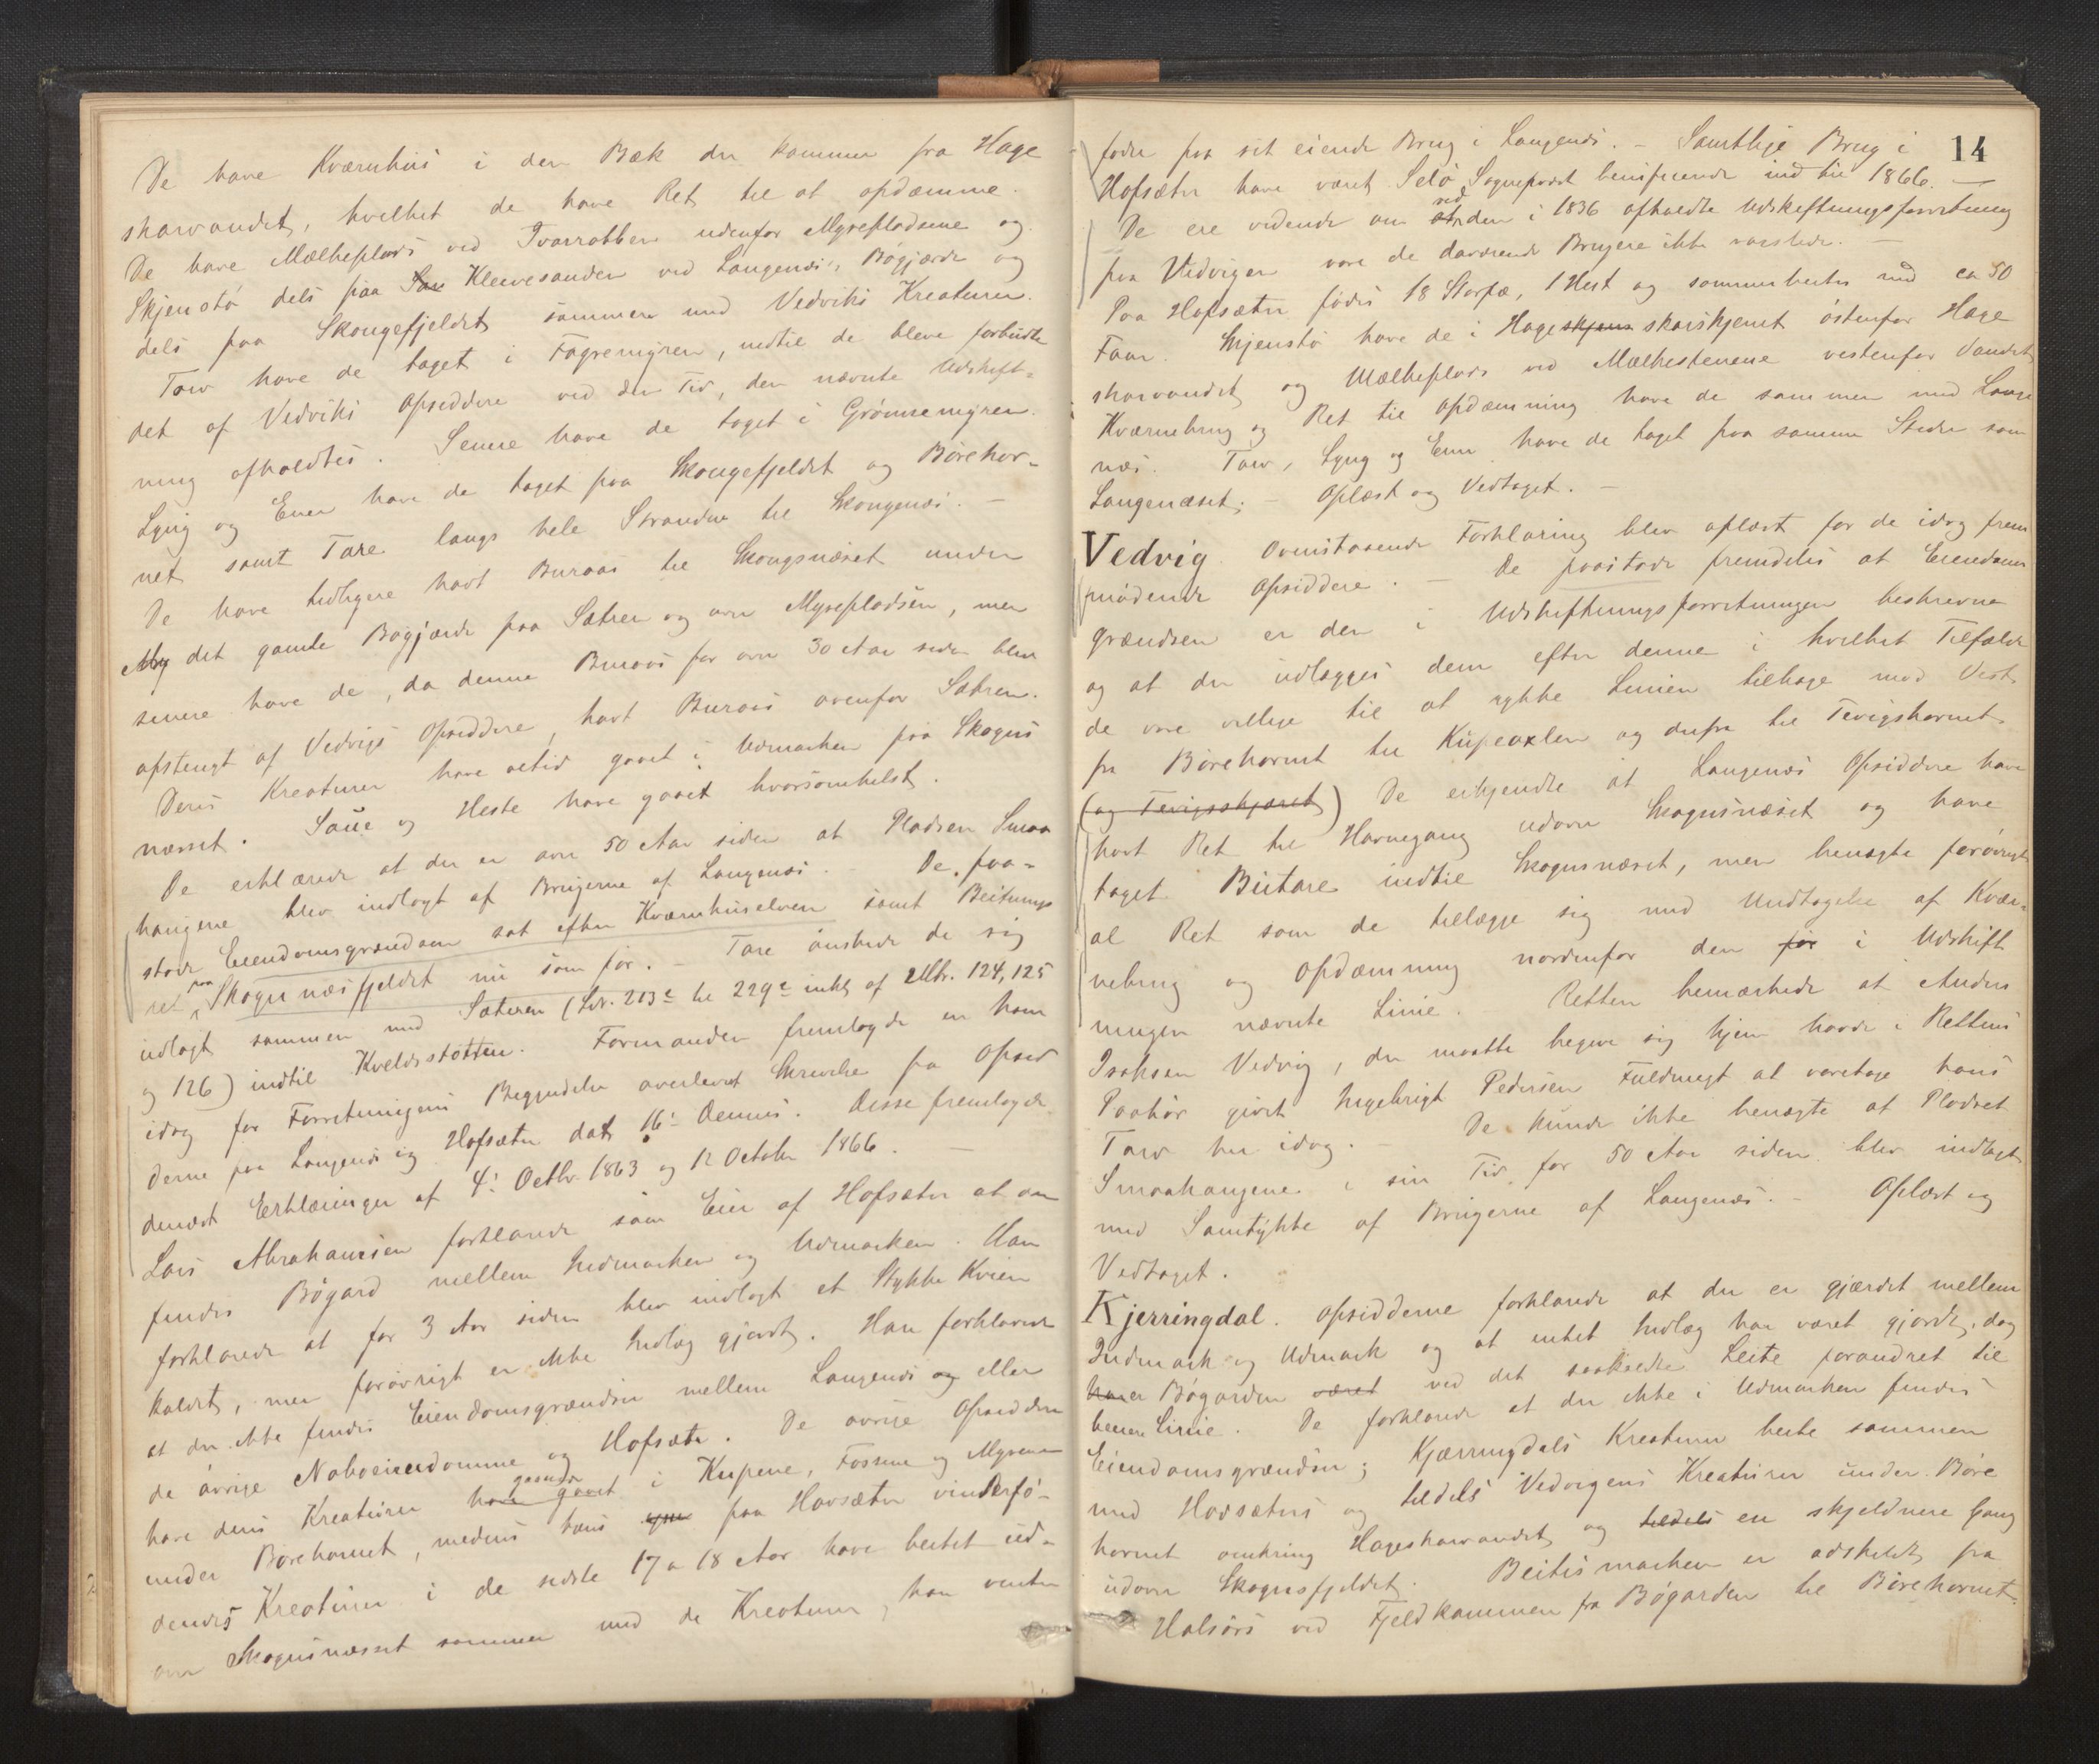 De have Kværnhus i den Bæk der kommer fra Hage
skarvandet, hvilket de have Ret til at opdæmme.
De have Mælkeplads ved Tvarrabben udenfor Myrepladsene og
Skjenstø dels paa San Kleivesanden ved Langenæs, Bøgjærde og
dels paa Skongefjeldet sammen med Vedviks Kreaturer.
Torv have de taget i Fagremyren, indtil de bleve forbudte
det af Vedviks Opsiddere ved den Tid, den nævnte Udskift-
ning afholdtes. Senere have de taget i Grønnemyren.
Lyng og Ener have de taget paa Skongefjeldet og Börehor-
net samt Tare langs hele Stranden til Skongenæs. -
De have tidligere havt Buraas til Skongsnæset under
My det gamle Bøgjærde paa Sætren og over Myrepladsen, men
senere have de, da denne Buraas for over 30 Aar siden blev
afstengt af Vedvigs Opsiddere, havt Buraas ovenfor Sætren.
Deres Kreaturer have altid gaaet i Udmarken paa Skogns
næsset. Saue og Heste have gaaet hvorsomhelst.
De erklærede at der er over 50 Aar siden at Pladsen Smaa
haugene blev indlagt af Brugerne af Langenæs. - De paa-
stode Eiendomsgrændsen sat efter Kværnhuselven samt Beitnings
ret paa Skognnæsfjeldet nu som før. - Tare ønskede de sig
udlagt sammen med Sæteren (Lit. 213 til 229 inkl. af Mtr. 124, 125
og 126) indtil Kveldsstøtten. Formanden fremlagde en ham
idag for Forretningens Begyndelse overleveret Skrivelse fra Opsid
derne paa Langenæs og Hofsæter dat. 16 dennes. Disse fremlagde
dernæst Erklæringer af 4. Octbr. 1863 og 12 October 1866. -
Lars Abrahamsen forklarede som Eier af Hofsæter at der
findes Bøgard mellem Indmarken og Udmarken. Han
forklarede at for 3 Aar siden blev indlagt et Stykke Kvien
kaldet, men forøvrigt er ikke Indlæg gjordt. Han forklarede
at der ikke findes Eiendomsgrændser mellem Langenæs og eller
de øvrige Naboeiendomme og Hofsæter. De øvrige Opsiddere
have deres Kreaturer have gaaet i Kupene, Fossene og Myrene
under Børehornet, medens hans egne paa Havsæter vinterfø-
dendes Kreaturer i de sidste 17 a 18 Aar have beitet ud-
over Skognsnæsset sammen med de Kreaturer, han vinter
14
foder paa sit eiende Brug i Langenæs. - Samtlige Brug i
Hofsæter have været Selø Sognepræst benificerende ind til 1866. -
De ere vidende om at ved den i 1836 afholdte Udskiftningsforretning
paa Vedvigen vare de daværende Brugere ikke varslede. -
Paa Hofsæter fødes 18 Storfæ, 1 Hest og sommerbeites med ca 50
Faar. Skjenstø have de i Hageskjens skarskjenet østenfor Hage
skarvandet og Mælkeplads ved Mælkestenene vestenfor Vandet.
Kværnebrug og Ret til Opdæmning have de sammen med Lange
næs. Torv, Lyng og Ener have de taget paa samme Steder som
Langenæset; - Oplæst og Vedtaget. -
Vedvig. Ovenstaaende Forklaring blev oplæst for de idag frem
mødende Opsiddere. - De paastode fremdeles at Eiendoms
grændsen er den i Udskiftningsforretningen beskrevne
og at der udlægges dem efter denne i hvilket Tilfælde
de vare villige til at rykke Linien tilbage mod Vest
fra Børehornet til Kupeoxlen og derfra til Tevigshornet
(og Tevigsskjæret) De erkjendte at Langenæs Opsiddere have
havt Ret til Havnegang udover Skognsnæset og have
taget Butare indtil Skognsnæset, men benægte forøvrigt
al Ret som de tillægge sig med Undtagelse af Kvær-
nebrug og Opdæmning nordenfor den før i Udskift
ningen nævnte Linie. - Retten bemærkede at Anders
Isaksen Vedvig, der maatte begive sig hjem havde i Rettens
Paahør givet Ingebrigt Pedersen Fuldmagt at varetage hans
Tarv her idag. - De kunde ikke benægte at Pladset
Smaahaugene i sin Tid for 50 Aar siden blev indlagt
med Samtykke af Brugerne af Langenæs. - Oplæst og
Vedtaget.
Kjerringdal. Opsidderne forklarede at der er gjærdet mellem
Indmark og Udmark og at intet Indlæg har været gjordt, dog
har er Bøgarden været ved det saakaldte Leite forandret til
benere Linie. De forklarede at der ikke i Udmarken findes
Eiendomsgrændser; Kjærringdals Kreaturer beite sammen
med Havsæters og tildels Vedvigens Kreaturer under Børe
hornet omkring Hageskarvandet og tildels en skjeldnere Gang
udover Skognsfjeldet. Beitesmarken er adskildt fra
Halsørs ved Fjeldkammen fra Bøgarden til Børehornet.